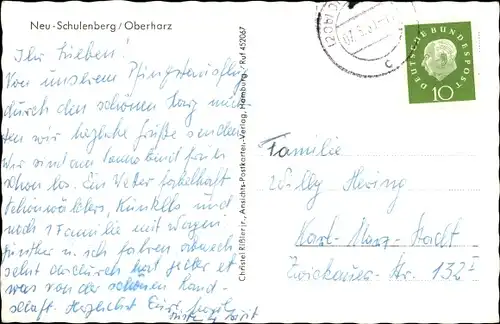 Neu-Schulenberg/Oberharz
Ihr Lieben!
Von unserem Pfingstausflug
durch den schönen Harz möch-
ten wir herzliche Grüße senden
Wir sind am Sonnabend früh
schon los. Ein Wetter fabelhaft
und
noch 1 Familie mit Wagen
u. ich fahren
selbst dadurch hat jeder et
was von der schönen Land-
schaft. Herzlichst Eure
Christel Rißler jr., Ansichts-Postkarten-Verlag, Hamburg, Ruf 452067
DEUTSCHE BUNDESPOST
10
Familie
Willy Hering
Karl-Marx-Stadt
Zwickauer-Str. 132 I